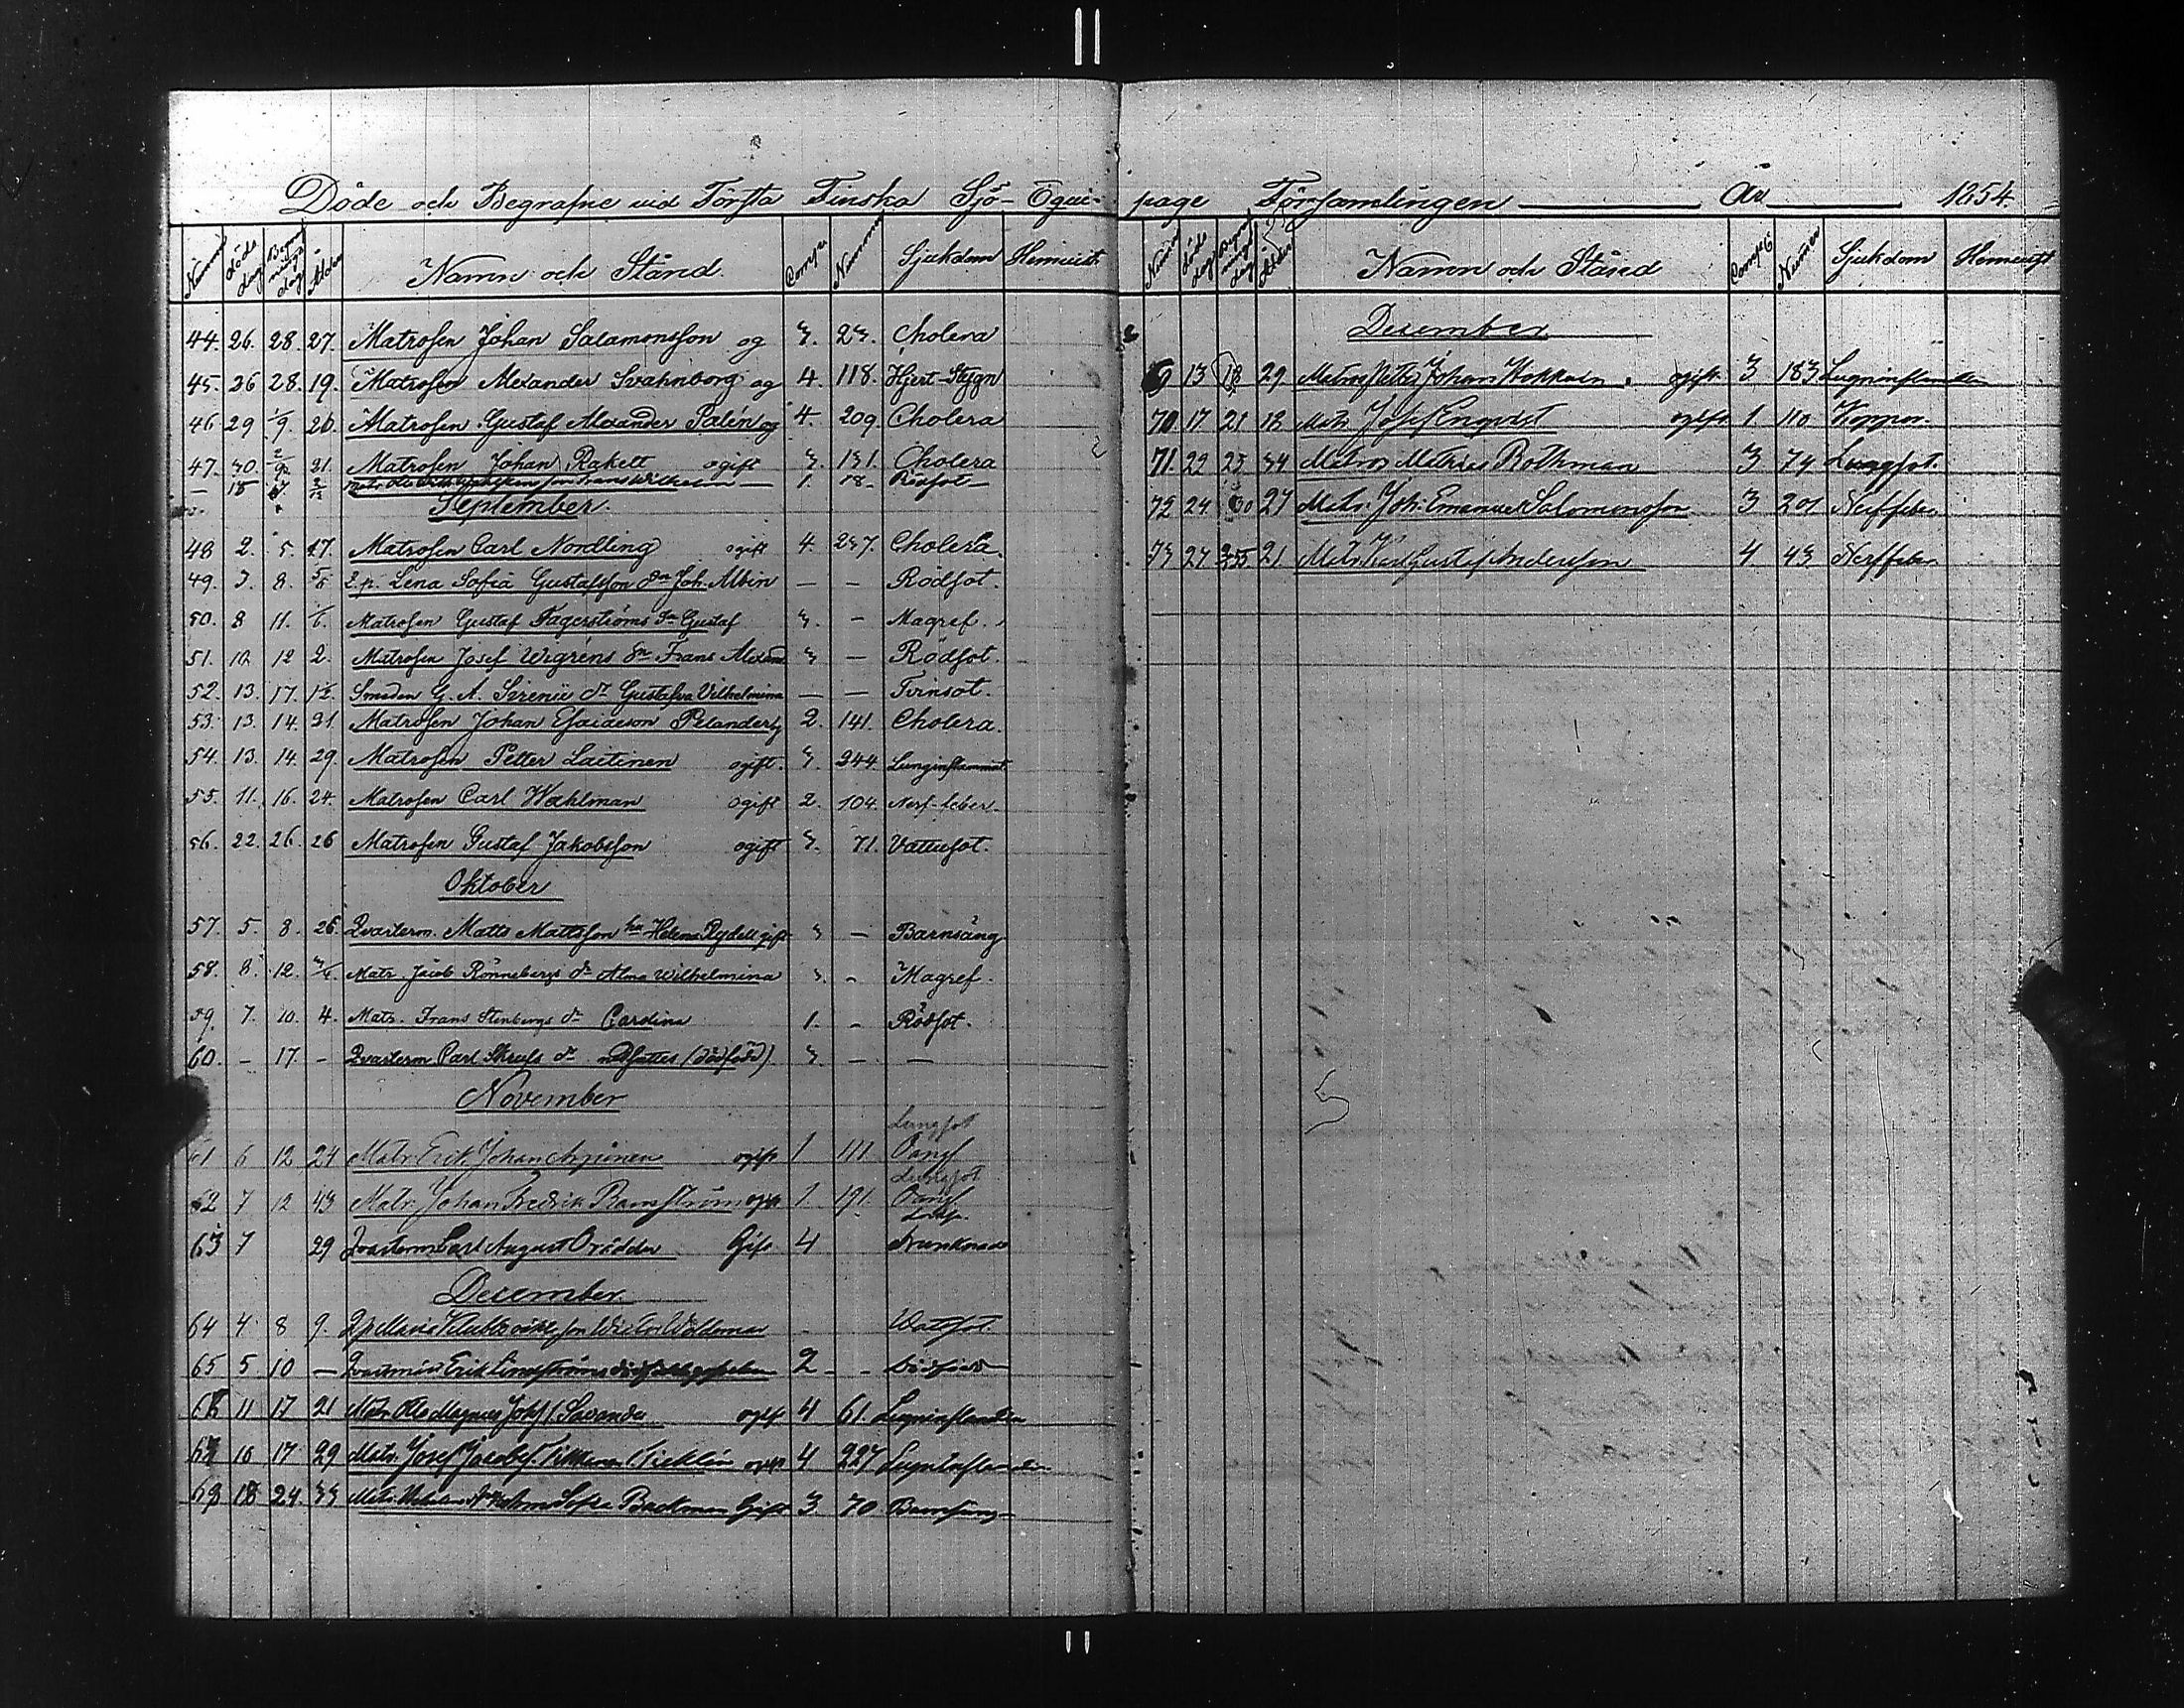 Döde och Begrafne vid Första Finska Sjö-Equi-page Församlingen År 1854.
Nummer döde dag Begrafnings dag Ålder Namn och Stånd Comp. Nummer Sjukdom Hemvist
44. 26. 28. 27. Matrosen Johan Salamonsson og 3. 23. Cholera
45. 26 28. 19. Matrosen Alexander Svahnborg og 4. 118. Hjert-Stygn
46 29 1/9. 26. Matrosen Gustaf Alexander Palén og 4. 209. Cholera
47. 30. 2/9. 21. Matrosen Johan Rakett ogift 3. 131. Cholera
— 18 son Frans Wilhelm — 1. 18 — Rödsot —
September.
48 2. 5. 17. Matrosen Carl Nordling ogift 4. 237. Cholera.
49. 3. 8. Q.p. Lena Sofia Gustafsson sn Joh. Albin — — Rödsot.
50. 8 11. 1/6. Matrosen Gustaf Fagerströms sn Gustaf 3. — Magref.
51. 10. 12 2. Matrosen Josef Wegréns sn Frans Alexand 3 — Rödsot.
52. 13. 17. 1½. Smeden G. A. Sirenii dr Gustafva Vilhelmina — — Tvinsot.
53. 13. 14. 21. Matrosen Johan Esaiason Pelander og 2. 141. Cholera.
54. 13. 14. 29. Matrosen Petter Laitinen ogift. 3. 244. Lunginflammat
55. 11. 16. 24. Matrosen Carl Wahlman ogift 2. 104. Nerf-feber
56. 22. 26. 26 Matrosen Gustaf Jakobsson ogift 3. 71. Vattusot.
Oktober
57. 5. 8. 26. Qvarterm. Matts Mattsson hu Helena Rydell gift 3 — Barnsäng
58. 8. 12. 3/4. Matr. Jacob Rönnebergs dr Alma Wilhelmina 3. — Magref.
59. 7. 10. 4. Matr. Frans Stenbergs dr Carolina 1. — Rödsot.
60. — 17. — Qvarterm Carl Skrufs dr (dödfödd) 3. — —
November
Lungsot
61 6 12 24 Matr. Erik Johan ogift 1 111
Lungsot
62 7 12 43 Matr. Johan Fredrik Ramström ogift 1. 191.
63 7 29 Qvarterm Carl August Orädder Gift 4 Drunknad
December.
64 4 8 9. Qp Maria son Victor Woldemar — Vattsot
65 5. 10 — Qvarterm Erik Lindströms 2 — — Dödfödd
66 11 17 21 Matr. Ole Magnus Josefs. Savander ogift 4 61. Lunginflamation
67 10 17 29 Matr. Josef Jacobs. Tikkanen Ticklén ogift 4 227 Lunginflamation
68 18 24. 33 Matr. Sofia Backman Gift 3. 70 Barnsäng
Numer döde dag Begrafnings dag Ålder Namn och Stånd Comp. Numer Sjukdom Hemvist
December
69 13 18 29 Matros Petter Johan Kokkoin. ogift 3 183 Lunginflamation
70. 17 21 18 Matr. Josef Enqvist ogift 1 110 Koppor.
71. 22 25 34 Matros Mathias Rothman 3 74 Lungsot.
72 24 30 27 Matr. Joh. Emanuel Salomonsson 3 201 Nerffeber
73 27 21 Matr. Karl Gustaf Andersson 4 43 Nerffeber